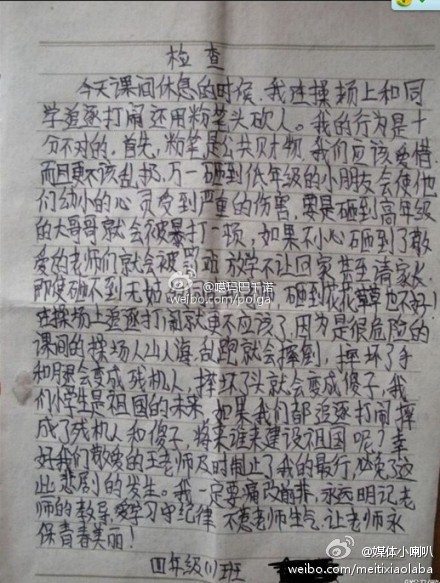 检查
今天课间休息的时候，我进操场上和同
学追逐打闹还用粉笔头砍人。我的行为是十
分不对的。首先，粉笔是公共财物，我们应该爱惜
而且更不该乱扔，万一砸到低年级的小朋友会使他
们幼小的心灵受到严重的伤害，要是砸到高年级
的大哥哥就会被暴打一顿，如果不小心砸到了敬
爱的老师们就会被罚班 放学不让回家 甚至请家长
即使砸不到 砸到花花草草也
进操场上追逐打闹就更不应该了，因为是很危险的
课间的操场人山人海，乱跑就会摔倒，摔坏了手
和腿会变成残机人，摔坏了头就会变成傻子，我
们小学生是祖国的未来，如果我们都追逐打闹摔
成了残机人和傻子，将来谁来建设祖国呢？幸
好我们敬爱的王老师及时制止了我的最行，必免了这
些悲剧的发生。我一定要痛改前非，永远明记老
师的教导，爱学习守纪律 不惹老师生气，让老师永
保青春美丽！
四年级(1)班
@嘚吗巴千诺
weibo.com/polga
@媒体小喇叭
weibo.com/meitixiaolaba